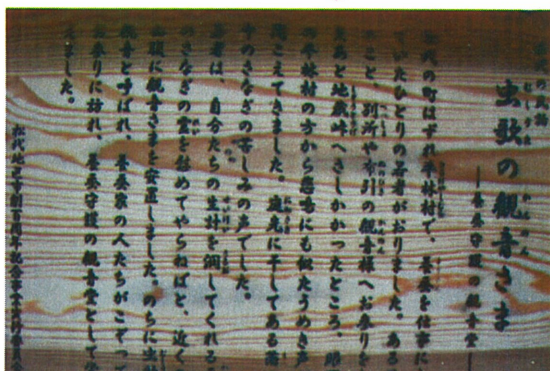 松代の民話
虫歌の観音さま
―養蚕守護の観音堂―
松代の町はずれ平林村で、養蚕を仕事に
ていたひとりの若者がおりました。ある
のこと、別所や布引の観音様へお参りを
と地蔵峠へさしかかったところ、
平林村の方から悲鳴にも似たうめき声
聞こえてきました。道先に干してある
中のさなぎの苦しみの声でした。
若者は、自分たちの生計を潤してくれる
のさなぎの霊を慰めてやらねばと、近く
山頂に観音さまを安置しました。のちに虫
観音と呼ばれ、養蚕家の人たちがこぞって
お参りに訪れ、養蚕守護の観音堂として
ました。
松代地区市制百周年記念事業実行委員会